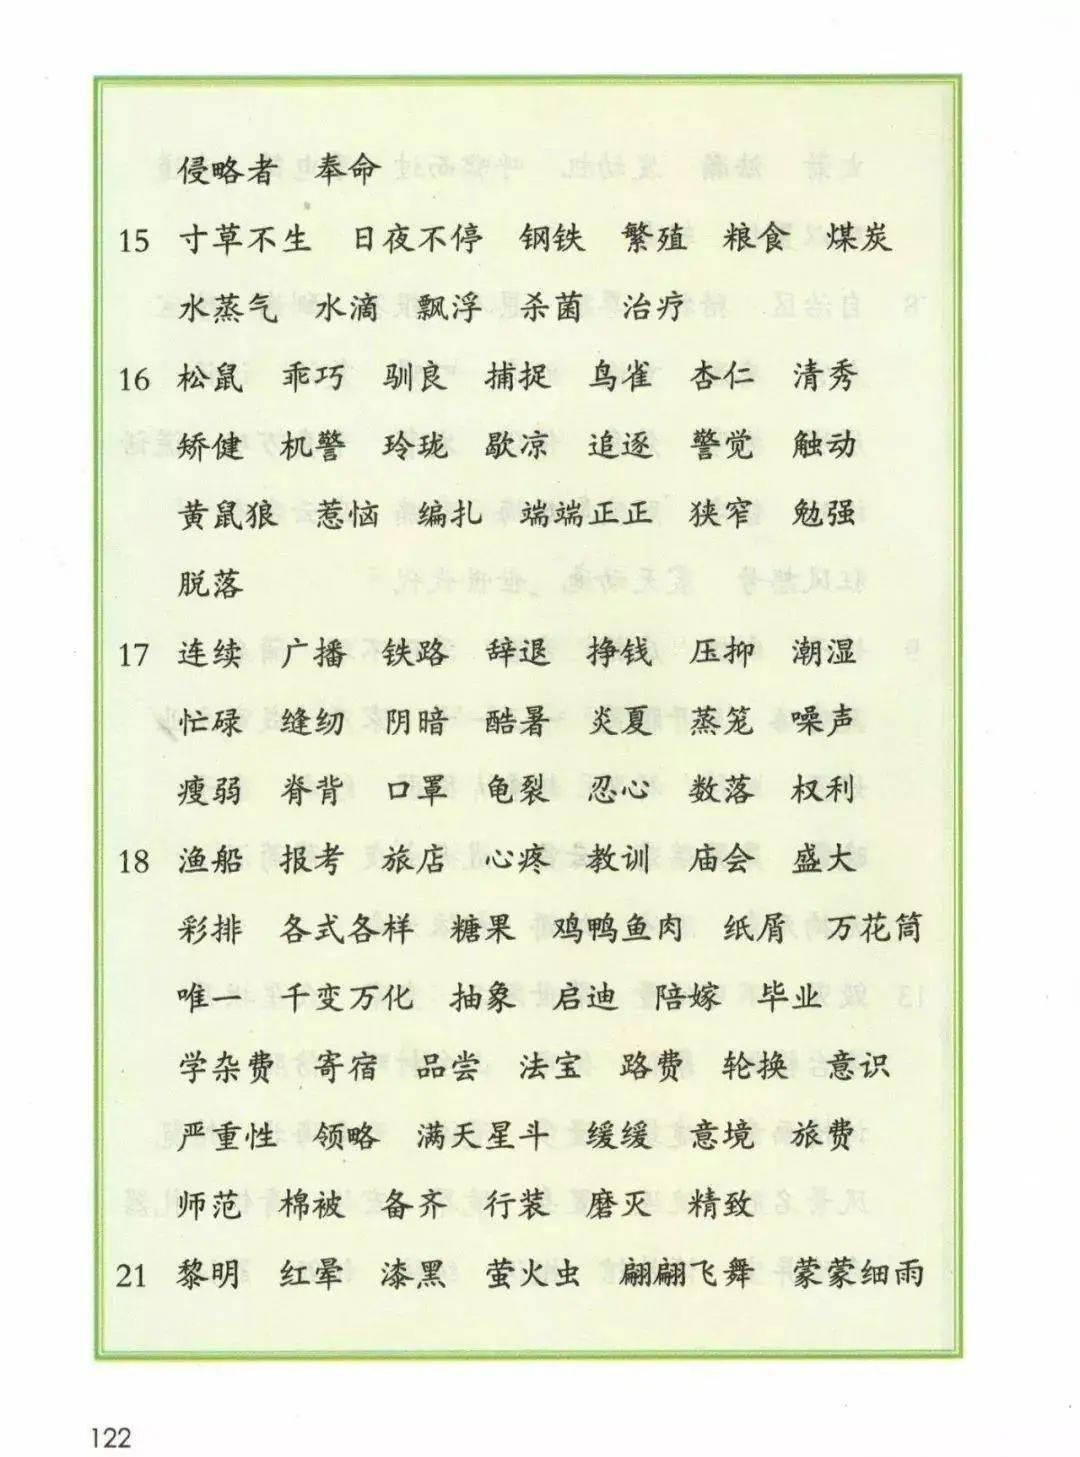 侵略者 奉命
15 寸草不生 日夜不停 钢铁 繁殖 粮食 煤炭
水蒸气 水滴 飘浮 杀菌 治疗
16 松鼠 乖巧 驯良 捕捉 鸟雀 杏仁 清秀
矫健 机警 玲珑 歇凉 追逐 警觉 触动
黄鼠狼 惹恼 编扎 端端正正 狭窄 勉强
脱落
17 连续 广播 铁路 辞退 挣钱 压抑 潮湿
忙碌 缝纫 阴暗 酷暑 炎夏 蒸笼 噪声
瘦弱 脊背 口罩 龟裂 忍心 数落 权利
18 渔船 报考 旅店 心疼 教训 庙会 盛大
彩排 各式各样 糖果 鸡鸭鱼肉 纸屑 万花筒
唯一 千变万化 抽象 启迪 陪嫁 毕业
学杂费 寄宿 品尝 法宝 路费 轮换 意识
严重性 领略 满天星斗 缓缓 意境 旅费
师范 棉被 备齐 行装 磨灭 精致
21 黎明 红晕 漆黑 萤火虫 翩翩飞舞 蒙蒙细雨
122